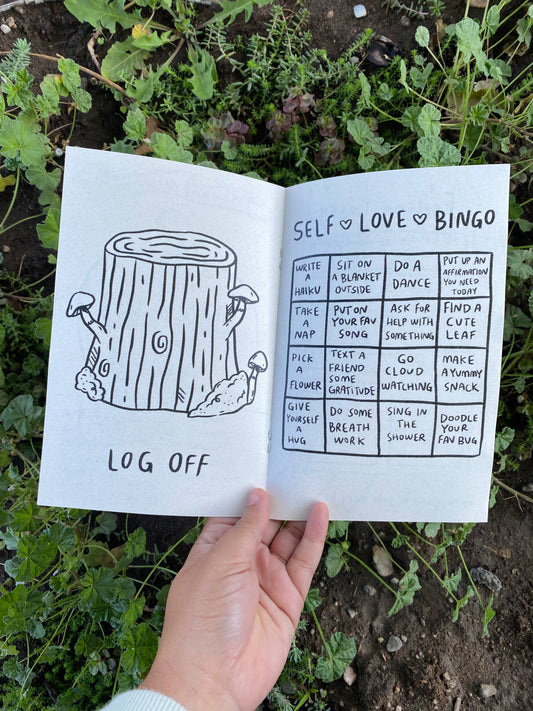 LOG OFF
SELF ♡ LOVE ♡ BINGO
WRITE
A
HAIKU
SIT ON
A BLANKET
OUTSIDE
DO A
DANCE
PUT UP AN
AFFIRMATION
YOU NEED
TODAY
TAKE
A
NAP
PUT ON
YOUR FAV
SONG
ASK FOR
HELP WITH
SOMETHING
FIND A
CUTE
LEAF
PICK
A
FLOWER
TEXT A
FRIEND
SOME
GRATITUDE
GO
CLOUD
WATCHING
MAKE
A YUMMY
SNACK
GIVE
YOURSELF
A
HUG
DO SOME
BREATH
WORK
SING IN
THE
SHOWER
DOODLE
YOUR
FAV BUG